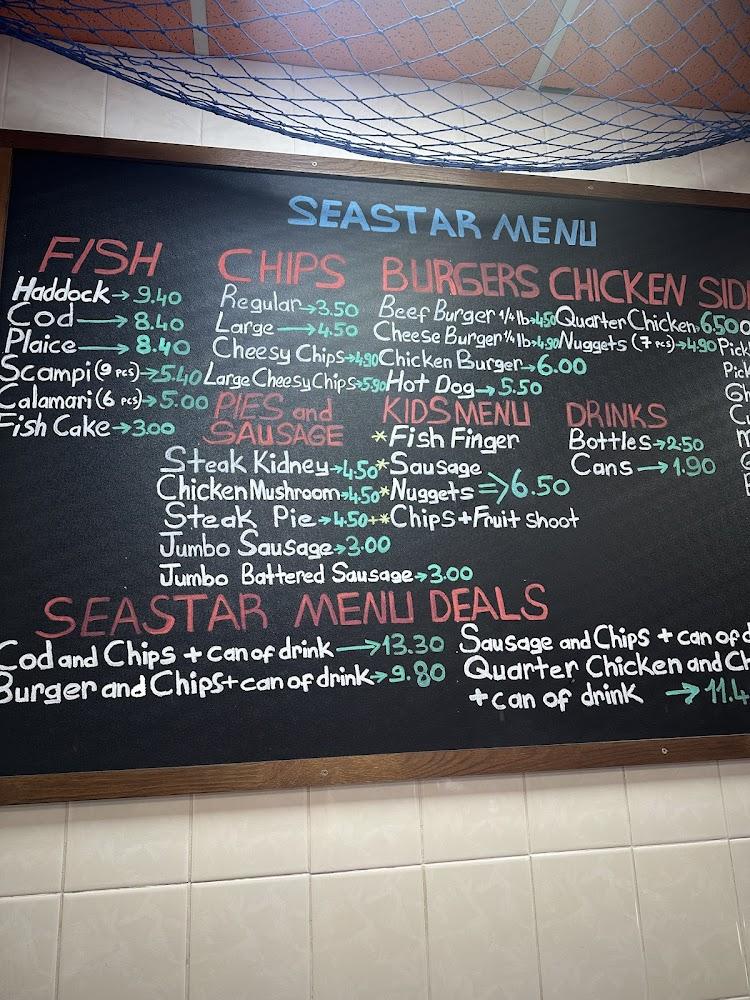 SEASTAR MENU
FISH
Haddock→9.40
Cod→8.40
Plaice→8.40
Scampi (9 pcs)→5.40
Calamari (6 pcs)→5.00
Fish Cake→3.00
CHIPS
Regular→3.50
Large→4.50
Cheesy Chips→4.90
Large Cheesy Chips→5.90
BURGERS
Beef Burger 1/4 lb→4.50
Cheese Burger 1/4 lb→4.90
Chicken Burger→6.00
Hot Dog→5.50
CHICKEN
Quarter Chicken→6.50
Nuggets (7 pcs)→4.90
PIES and
SAUSAGE
Steak Kidney→4.50
Chicken Mushroom→4.50
Steak Pie→4.50
Jumbo Sausage→3.00
Jumbo Battered Sausage→3.00
KIDS MENU
*Fish Finger
*Sausage
*Nuggets ⇒6.50
+*Chips+Fruit shoot
DRINKS
Bottles→2.50
Cans→1.90
SEASTAR MENU DEALS
Cod and Chips + can of drink→13.30
Burger and Chips+can of drink→9.80
Sausage and Chips + can of
Quarter Chicken and
+can of drink →11.4